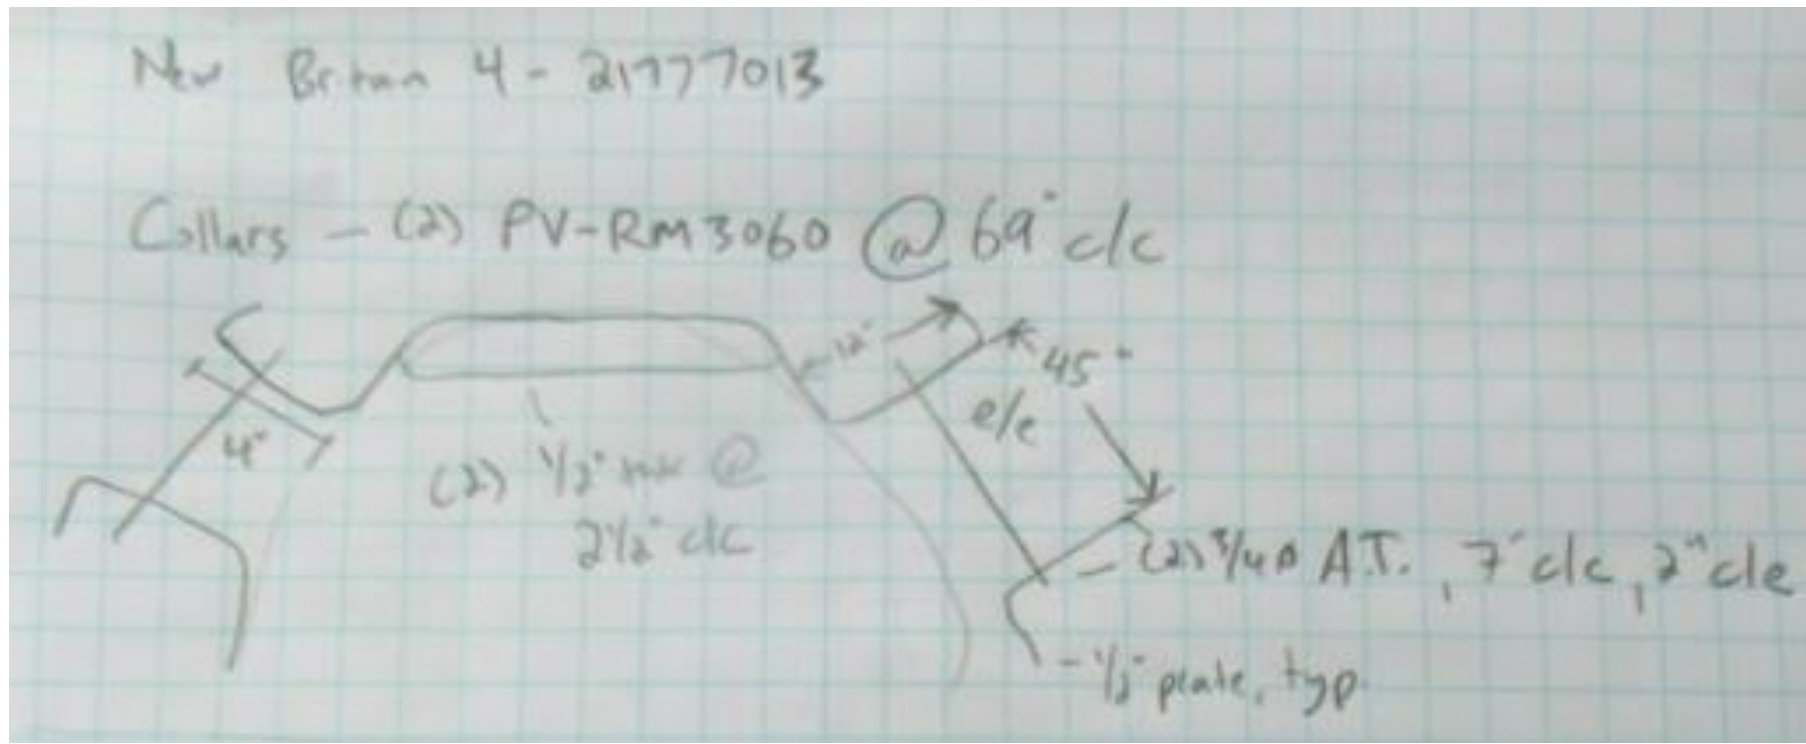 New Britian 4 - 21777013
Collars - (2) PV-RM3060 @ 69" c/c
12"
45"
e/e
4"
(2) 1/2" @
2 1/2" c/c
(2) 3/4 ø A.T., 7" c/c, 2" c/e
- 1/2" plate, typ.